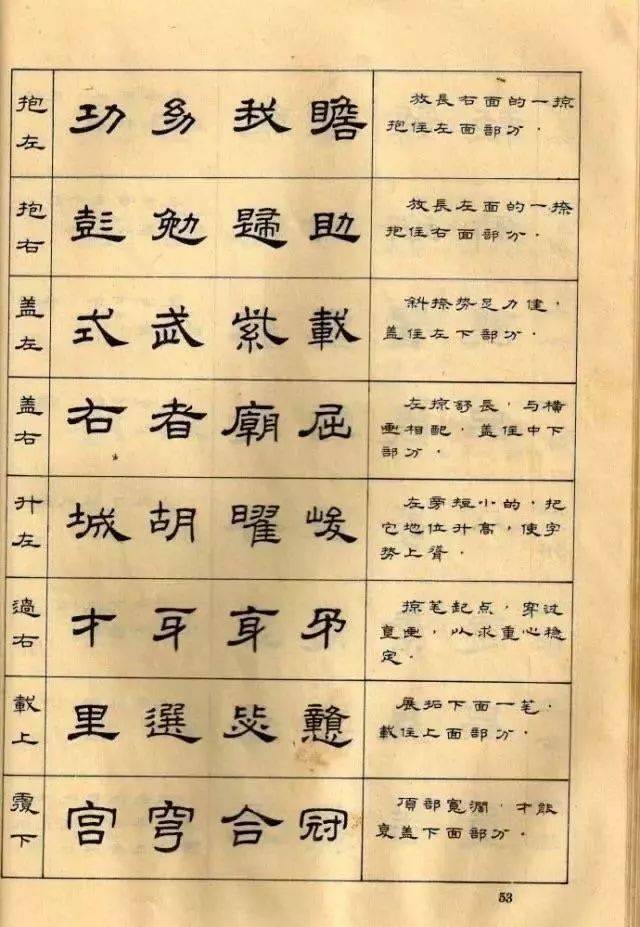 抱左
功 幼 我 瞻
放長右面的一掠
抱住左面部分.
抱右
彭 勉 助
放長左面的一捺
抱住右面部分.
盖左
式 武 紫 載
斜捺势足力健，
盖住左下部分.
盖右
右 者 廟 屈
左掠舒長，与橫
画相配，盖住中下
部分.
升左
城 胡 曜 峻
左旁短小的，把
它地位升高，使字
势上聳.
過右
才 牙
掠笔起点，穿过
直画，以求重心稳
定.
載上
里 選 毖
展拓下面一笔，
載住上面部分.
覆下
宫 穹 合 冠
頂部寬濶，才能
盖下面部分.
53